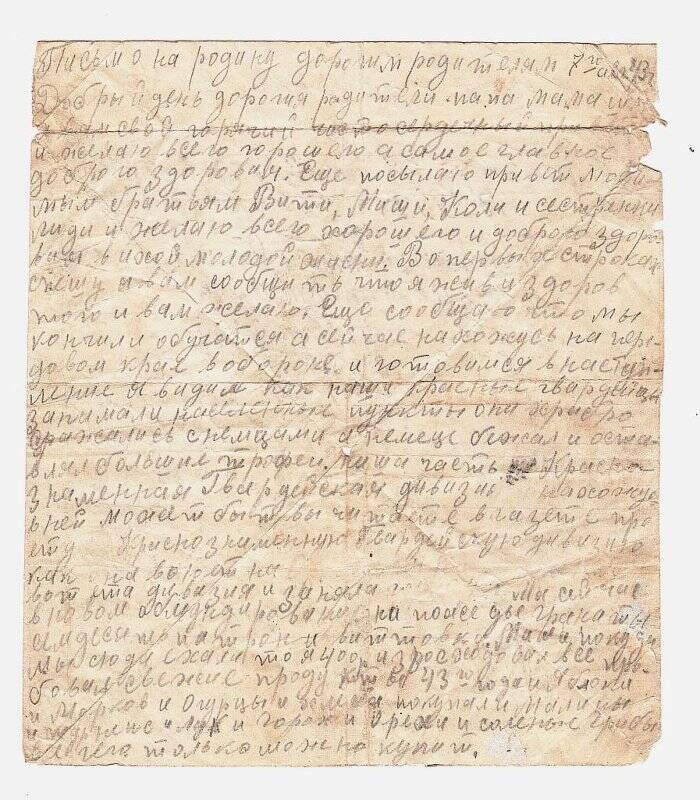 Письмо на родину дорогим родителям 7го
Добрый день дорогия радители папа мама
свой горячий чистосердечный
и желаю всего горошего а самое главное
доброго здоровья. Еще посылаю привет люби
мым братьям Вити, Миши, Коли и сестренки
лиди и желаю всего хорошего и доброго здоро
вья в ихой молодой жизни. Во первых строках
спешу я вам сообщить что я жив и здоров
того и вам желаю. Еще сообщаю что мы
кончили обучатся а сейчас нахожусь на пере
довом крае в обороне и готовимся в наступ-
ление я видил как наши красные гвардейцы
занимали населеные пункты они храбро
сражались с немцами а немец бежал и оста-
влял большие трофеи. наша часть Красно
знаменная Гвардейская дивизия нахожус
в ней может быть вы читаете в газете про
ету Краснознаменную Гвардейскую дивизию
как она воюет на
вот эта дивизия и заняла Мы сейчас
в новом обмундировании на поясе две гранаты
патрон и винтовка.
мы сюда ехали то я 400 и все
свежие 43го года и яблоки
и морков и огурцы и покупали малины
и лук и горох и орехи и соленые грибы
всего только можно купит.